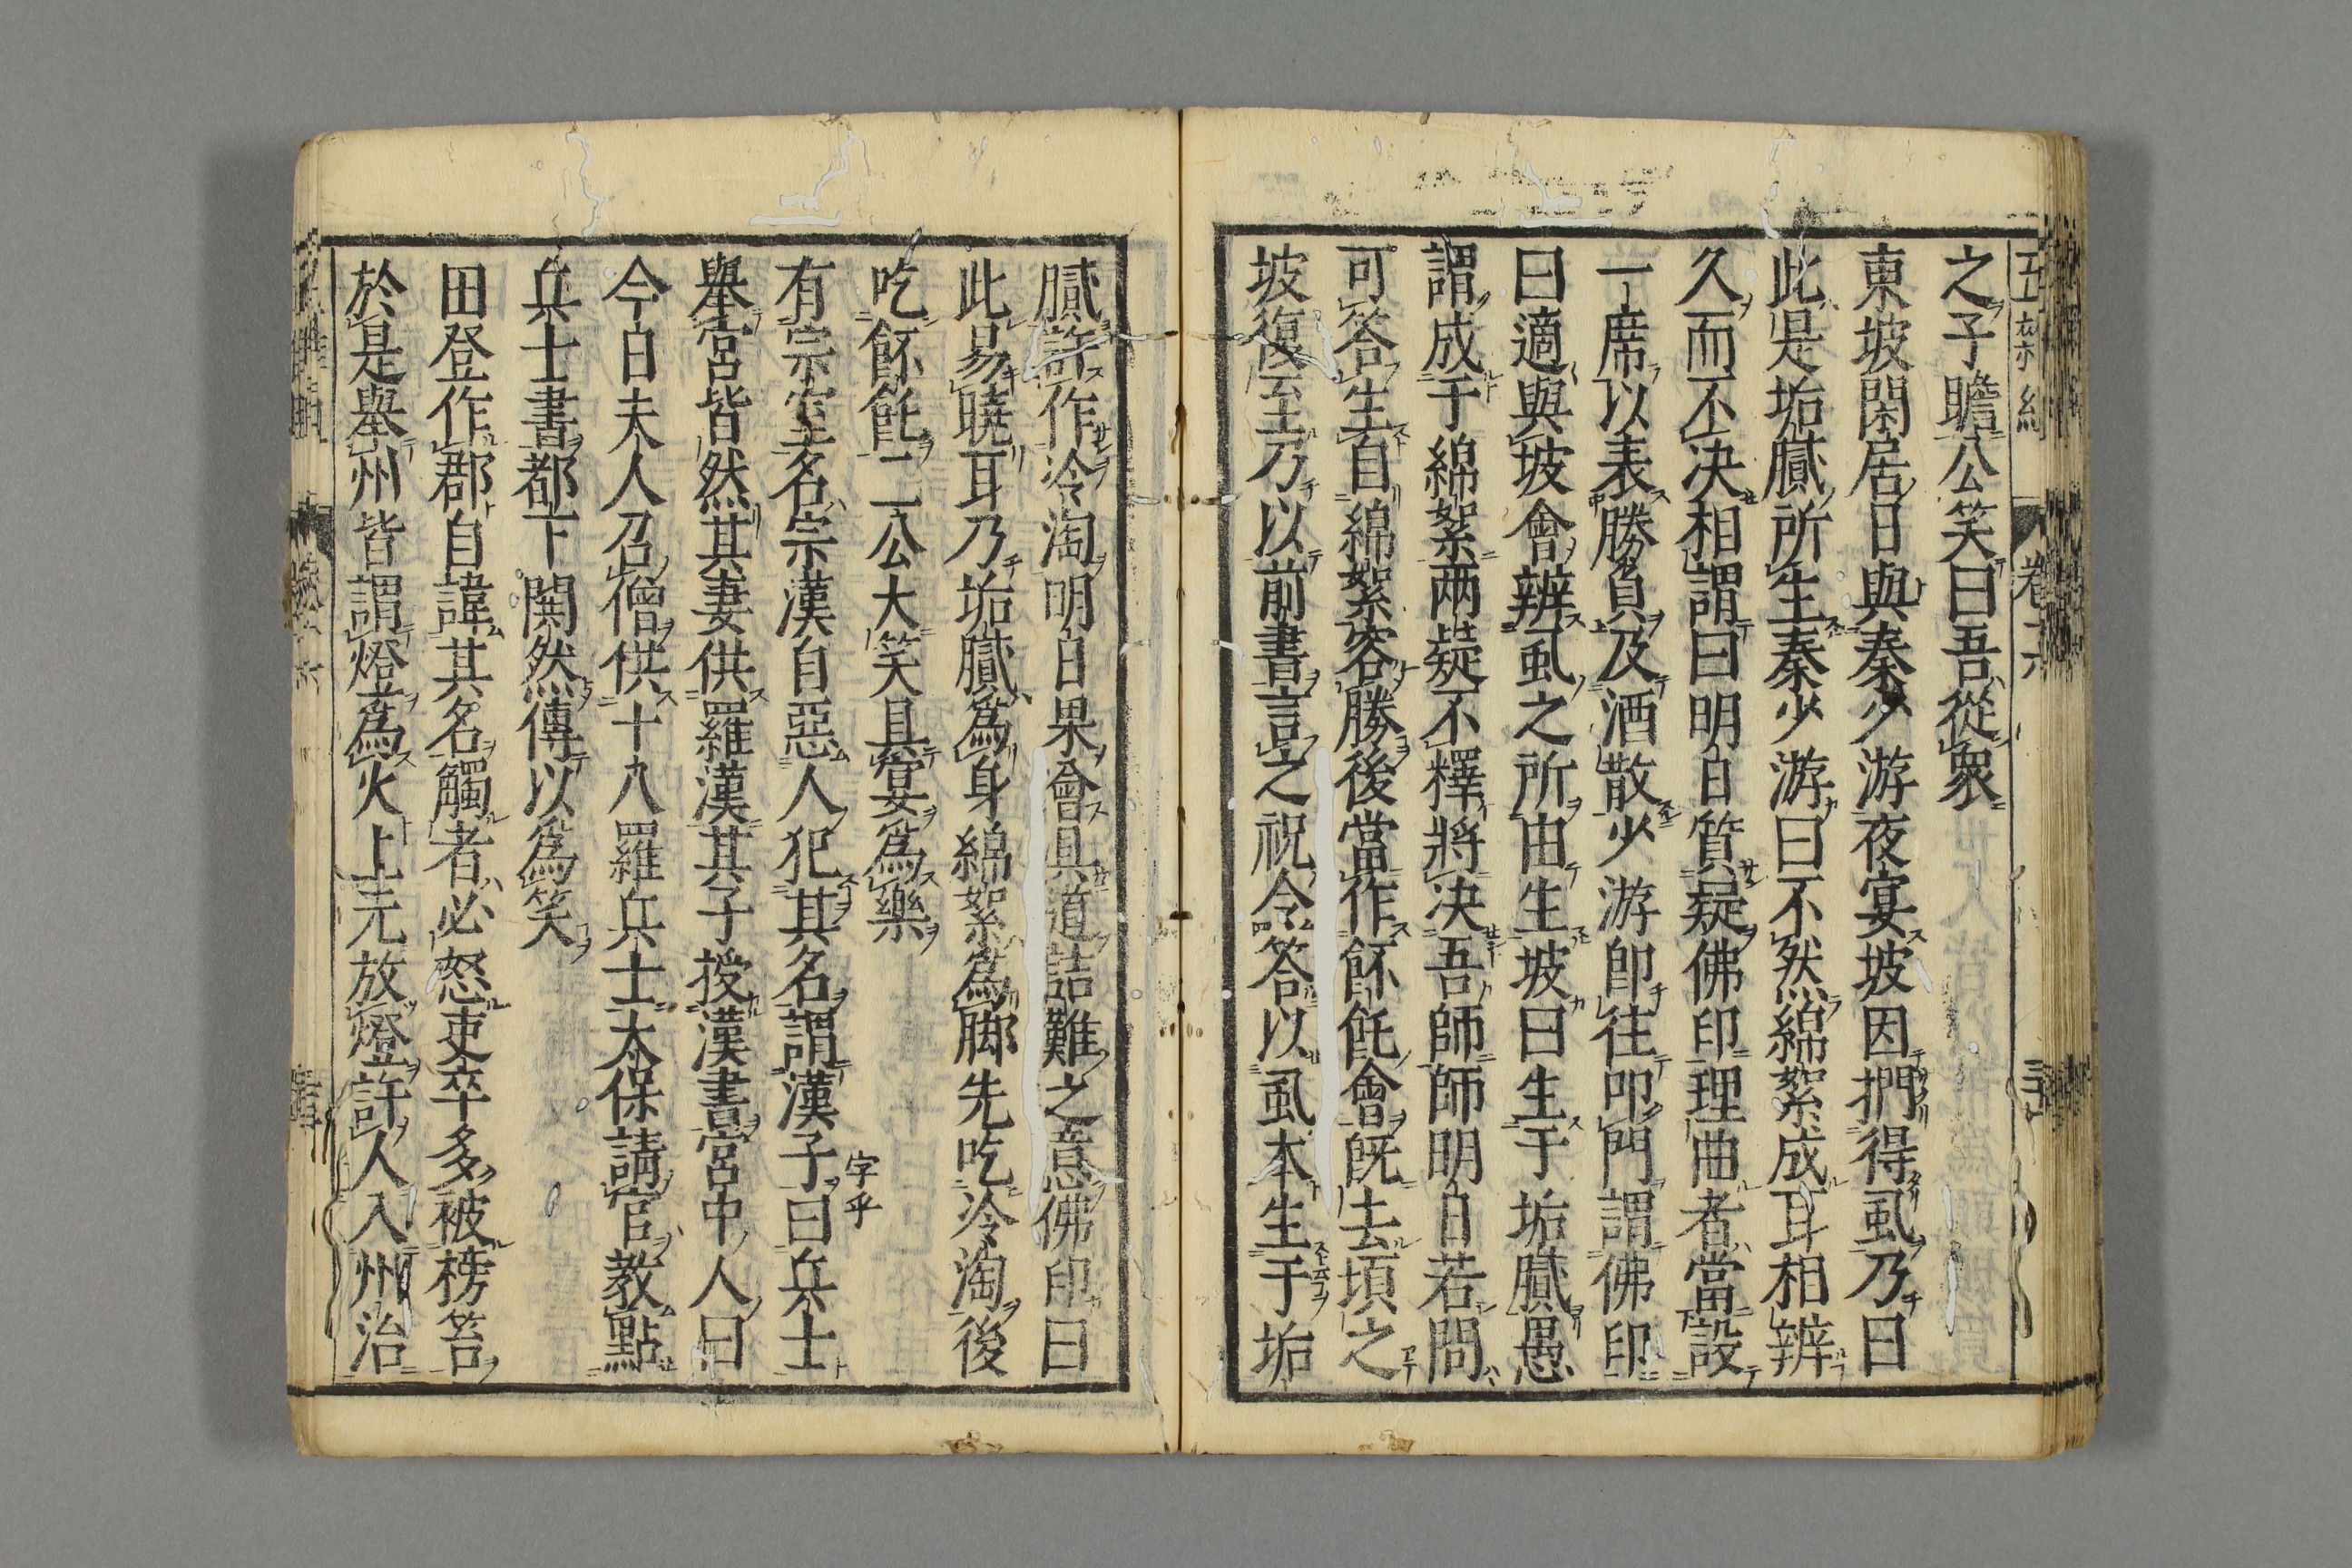 之子瞻公笑曰吾從衆
東坡閑居日與秦少游夜宴坡因捫得虱乃曰
此是垢膩所生秦少游曰不然綿絮成耳相辨
久而不决相謂曰明日質疑佛印理曲者當設
一席以表勝負及酒散少游卽往叩門謂佛印
曰適與坡會辨虱之所由生坡曰生于垢膩愚
謂成于綿絮兩疑不釋將决吾師師明日若問
可答生自綿絮容勝後當作飥會旣去頃之
坡復至乃以前書言之祝令答以虱本生于垢
膩許作冷淘明日果會具道詰難之意佛印曰
此易曉耳乃垢膩爲身綿絮爲脚先吃冷淘後
吃飥二公大笑具宴爲樂
有宗室名宗漢自惡人犯其名謂漢子曰兵士
字乎
舉宮皆然其妻供羅漢其子授漢書宮中人曰
今日夫人召僧供十八羅兵士太保請官教點
兵士書都下鬨然傳以爲笑
田登作郡自諱其名觸者必怒吏卒多被榜笞
於是舉州皆謂燈爲火上元放燈許人入州治
卷六